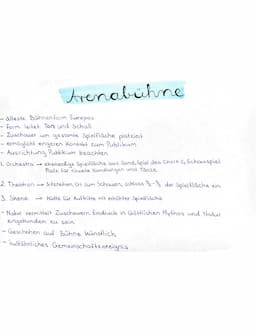 Arenabühne
- älteste Bühnenform Europas
- Form leitet Ton und Schall
- Zuschauer um gesamte Spielfläche platziert
- ermöglicht engeren Kontakt zum Publikum
- Ausrichtung Publikum beachten
1. Orchestra → ebenerdige Spielfläche aus Sand, Spiel des Chors &, Schauspiel
Platz für rituelle Handlungen und Tänze
2. Theatron → Sitzreihen, Ort zum Schauen, schloss ½ - ⅔ der Spielfläche ein
3. Skene → Hütte für Auftritte mit erhöhter Spielfläche
- Natur vermittelt Zuschauern Eindruck in Göttlichen Mythos und Natur
eingebunden zu sein
- Geschehen auf Bühne künstlich
- kultähnliches Gemeinschaftsereignis